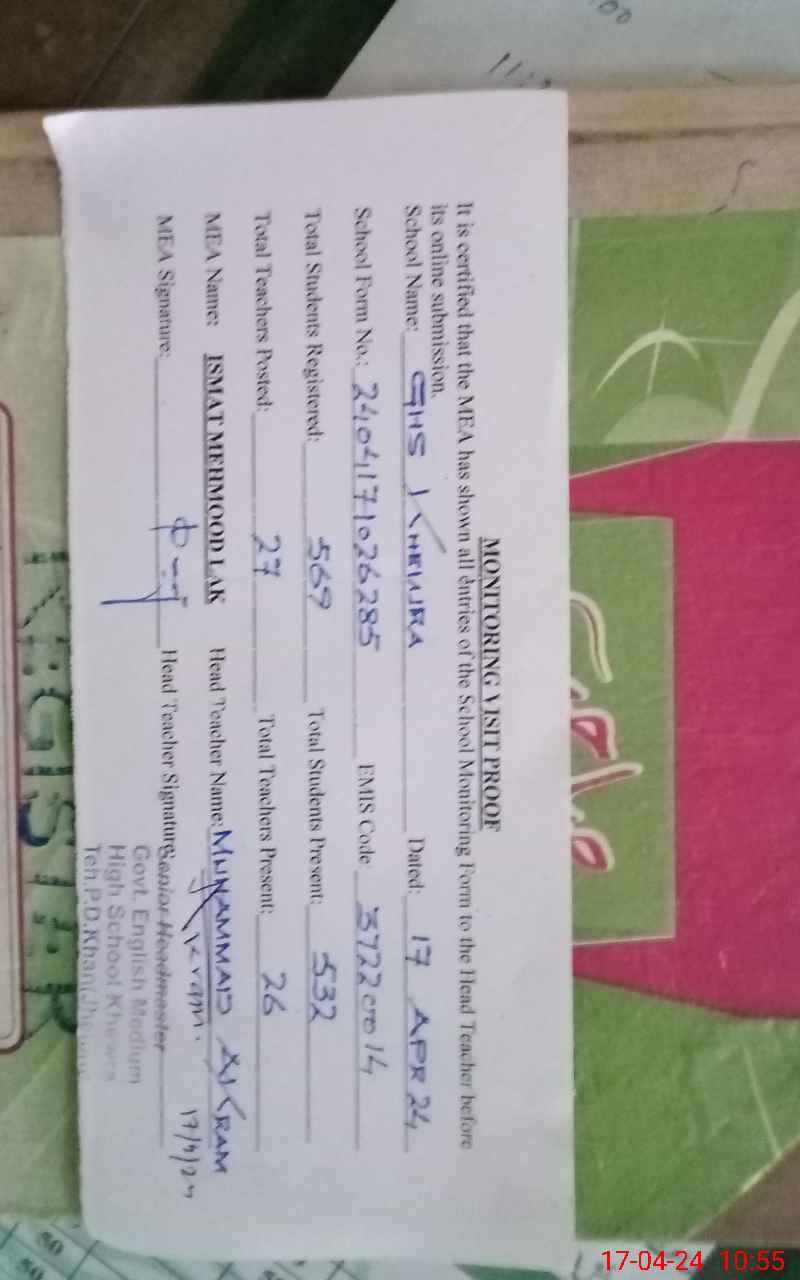 MONITORING VISIT PROOF
It is certified that the MEA has shown all entries of the School Monitoring Form to the Head Teacher before
its online submission.
School Name: GHS KHEWRA Dated: 17 APR 24
School Form No.: 2404171026285 EMIS Code: 37220014
Total Students Registered: 569 Total Students Present: 532
Total Teachers Posted: 27 Total Teachers Present: 26
MEA Name: ISMAT MEHMOOD LAK Head Teacher Name: MUHAMMAD AKRAM
MEA Signature: Head Teacher Signature: Akram. 17/4/24
Senior Headmaster
Govt. English Medium
High School Khewra
Teh.P.D.Khan(Jhelum)
17-04-24 10:55